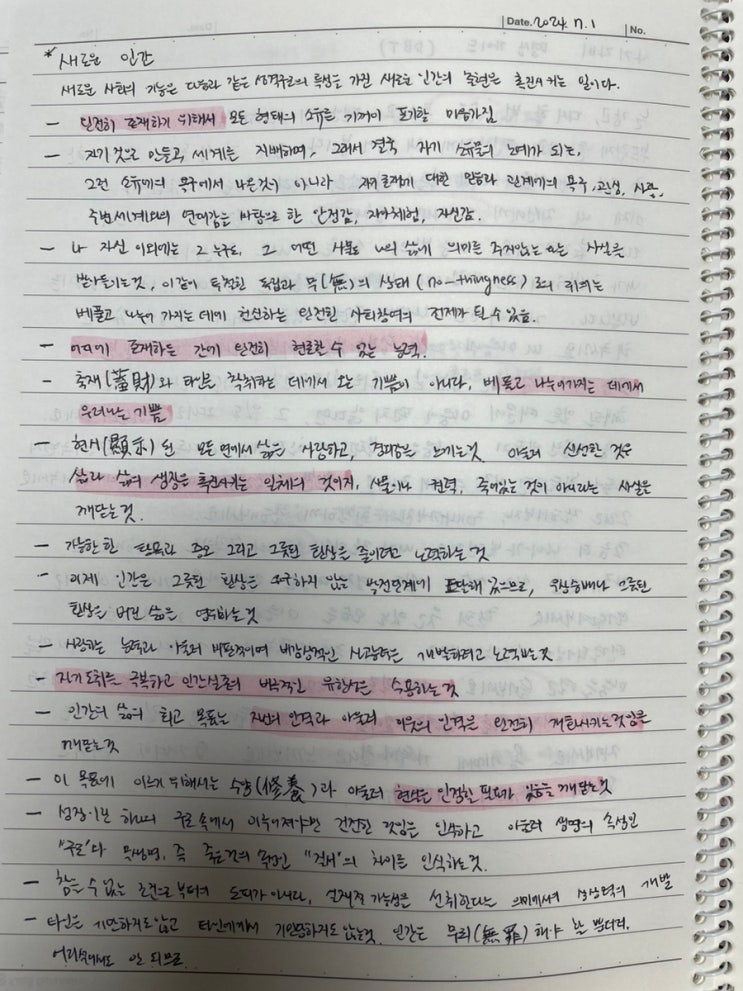 Date. 2024. 11. 1 No.
* 새로운 인간
새로운 사회의 기능은 다음과 같은 성격구조의 특성을 가진 새로운 인간의 출현을 촉진시키는 일이다.
- 온전히 존재하기 위해서 모든 형태의 소유를 기꺼이 포기할 마음가짐.
- 자기 것으로 만들고, 세계를 지배하며, 그래서 결국 자기 소유물의 노예가 되는,
그런 소유에의 욕구에서 나온것이 아니라 자기 존재에 대한 믿음과 관계에의 욕구, 관심, 사랑,
주변세계와의 연대감을 바탕으로 한 안정감, 자아체험, 자신감.
- 나 자신 이외에는 그 누구도, 그 어떤 사물도 나의 삶에 의미를 주지않는다는 사실을
받아들이는 것, 이같이 투철한 독립과 무(無)의 상태 (no-thingness)로의 귀의는
베풀고 나누어 가지는 데에 헌신하는 완전한 사회참여의 전제가 될 수 있음.
- 어디에 존재하든 간에 온전히 현존할 수 있는 능력.
- 축재(蓄財)와 타인을 착취하는 데에서 오는 기쁨이 아니라, 베풀고 나누어가지는 데에서
우러나는 기쁨
- 현시(顯示)된 모든 면에서 삶을 사랑하고, 경외감을 느끼는 것 아울러 신성한 것은
삶과 삶의 생장을 촉진시키는 일체의 것이지, 사물이나 권력, 죽어있는 것이 아니라는 사실을
깨닫는 것.
- 가능한 한 탐욕과 증오 그리고 그릇된 환상을 줄이려고 노력하는 것
- 이제 인간은 그릇된 환상을 요구하지 않는 발전단계에 도달해 있으므로, 우상숭배나 그릇된
환상을 버린 삶을 영위하는 것
- 사랑하는 능력과 아울러 비판적이며 비감상적인 사고능력을 개발하려고 노력하는 것
- 자기도취를 극복하고 인간실존의 비극적인 유한성을 수용하는 것
- 인간의 삶의 최고 목표는 자신의 인격과 아울러 이웃의 인격을 온전히 개화시키는 것임을
깨닫는 것
- 이 목표에 이르기 위해서는 수양(修養)과 아울러 현실을 인정할 필요가 있음을 깨닫는 것
- 성장이란 하나의 구조 속에서 이루어져야만 건전한 것임을 인식하고 아울러 생명의 속성인
"구조"와 무생명, 즉 죽은것의 속성인 "질서"의 차이를 인식하는 것.
- 참을 수 없는 조건으로부터의 도피가 아니라, 실재적 가능성을 선취한다는 의미에서의 상상력의 개발
- 타인을 기만하지도 않고 타인에게서 기만당하지도 않는 것. 인간은 무죄(無罪)해야 할 뿐더러,
어리석어서도 안 되므로